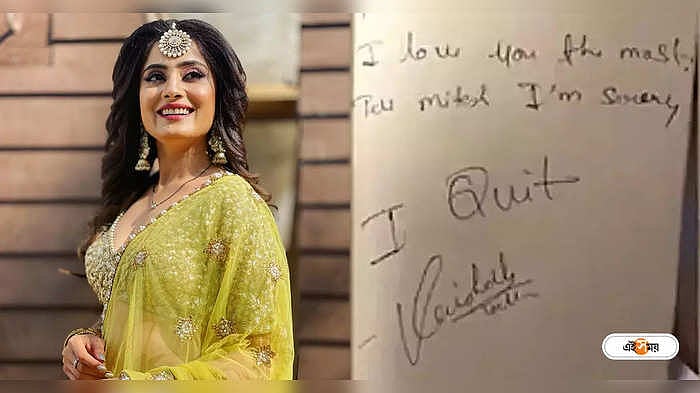 I love you the most.
Tell mitesh I'm sorry
I Quit
- Vaishali
এই সময়